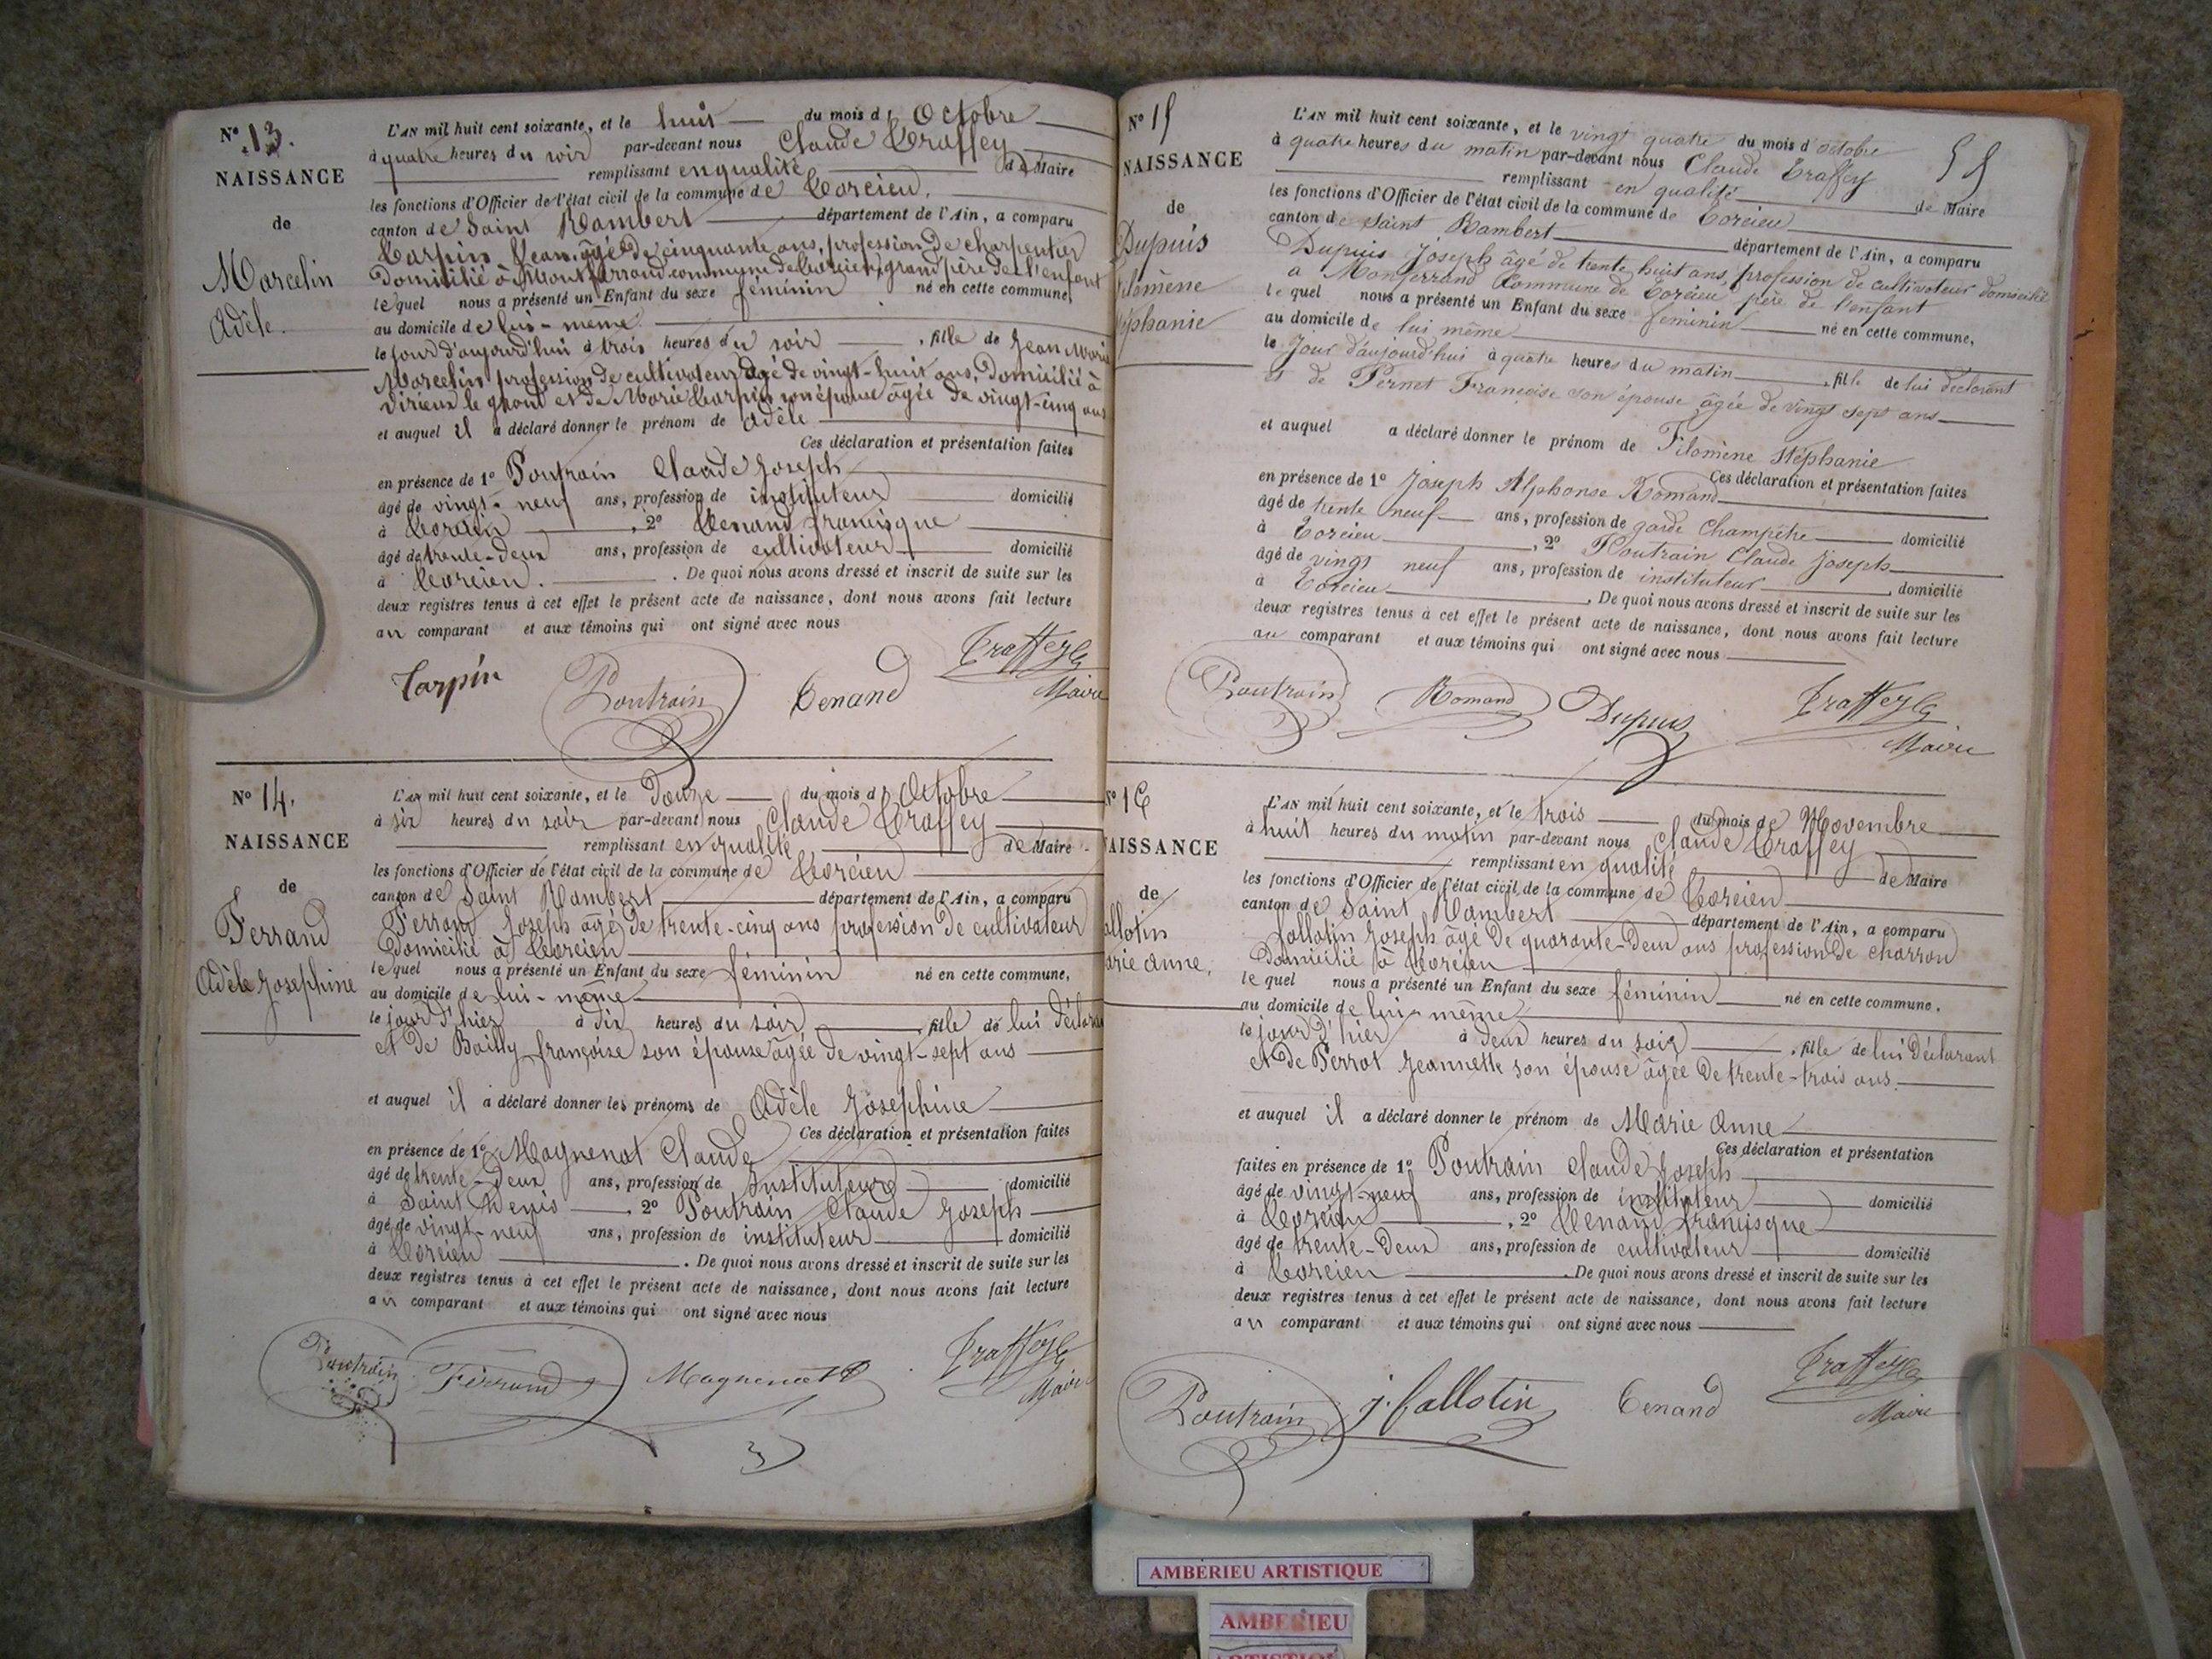 N° 13.
NAISSANCE
de
Marcelin
Adèle.
L'AN mil huit cent soixante, et le huit du mois d' Octobre
à quatre heures du soir par-devant nous Claude Traffey
remplissant en qualité de Maire
les fonctions d'Officier de l'état civil de la commune de Torcieu,
canton de Saint Rambert département de l'Ain, a comparu
Tarpin Jean âgé de cinquante ans, profession de charpentier
Domicilié à Montferrand commune de Torcieu, grand père de l'enfant
lequel nous a présenté un Enfant du sexe féminin né en cette commune,
au domicile de lui-même.
le jour d'aujourd'hui à trois heures du soir , fille de Jean Marie
Marcelin profession de cultivateur âgé de vingt-huit ans, Domicilié à
Virieux le grand et de Marie Tarpin son épouse âgée de vingt-cinq ans
et auquel il a déclaré donner le prénom de Adèle
Ces déclaration et présentation faites
en présence de 1° Poutrain Claude Joseph
âgé de vingt-neuf ans, profession de instituteur domicilié
à Torcieu , 2° Tenand francisque
âgé de trente-deux ans, profession de cultivateur domicilié
à Torcieu. . De quoi nous avons dressé et inscrit de suite sur les
deux registres tenus à cet effet le présent acte de naissance, dont nous avons fait lecture
au comparant et aux témoins qui ont signé avec nous
Tarpin Poutrain Tenand Traffey C
Maire
N° 14.
NAISSANCE
de
Ferrand
Adèle Josephine
L'AN mil huit cent soixante, et le Douze du mois d' Octobre
à six heures du soir par-devant nous Claude Traffey
remplissant en qualité de Maire
les fonctions d'Officier de l'état civil de la commune de Torcieu
canton de Saint Rambert département de l'Ain, a comparu
Ferrand Joseph âgé de trente-cinq ans profession de cultivateur
Domicilié à Torcieu
lequel nous a présenté un Enfant du sexe féminin né en cette commune,
au domicile de lui-même
le jour d'hier à dix heures du soir , fille de lui déclarant
et de Bailly françoise son épouse âgée de vingt-sept ans
et auquel il a déclaré donner les prénoms de Adèle Josephine
Ces déclaration et présentation faites
en présence de 1° Magnenat Claude
âgé de trente-deux ans, profession de Instituteur domicilié
à Saint Denis , 2° Poutrain Claude Joseph
âgé de vingt-neuf ans, profession de instituteur domicilié
à Torcieu . De quoi nous avons dressé et inscrit de suite sur les
deux registres tenus à cet effet le présent acte de naissance, dont nous avons fait lecture
au comparant et aux témoins qui ont signé avec nous
Poutrain Ferrand Magnenat Traffey C
Maire
N° 15
55
NAISSANCE
de
Dupuis
filomène
stéphanie
L'AN mil huit cent soixante, et le vingt quatre du mois d'octobre
à quatre heures du matin par-devant nous Claude Traffey
remplissant en qualité de Maire
les fonctions d'Officier de l'état civil de la commune de Torcieu
canton de Saint Rambert département de l'Ain, a comparu
Dupuis Joseph âgé de trente huit ans, profession de cultivateur domicilié
a Monferrand Commune de Torcieu père de l'enfant
lequel nous a présenté un Enfant du sexe feminin né en cette commune,
au domicile de lui même
le Jour d'aujourd'hui à quatre heures du matin , fille de lui declarant
et de Pernet Françoise son épouse âgée de vingt sept ans
et auquel a déclaré donner le prénom de Filomène Stéphanie
Ces déclaration et présentation faites
en présence de 1° Joseph Alphonse Romand
âgé de trente neuf ans, profession de garde Champêtre domicilié
à Torcieu , 2° Poutrain Claude Joseph
âgé de vingt neuf ans, profession de instituteur , domicilié
à Torcieu . De quoi nous avons dressé et inscrit de suite sur les
deux registres tenus à cet effet le présent acte de naissance, dont nous avons fait lecture
au comparant et aux témoins qui ont signé avec nous
Poutrain Romand Dupuis Traffey C
Maire
N° 16
NAISSANCE
de
allotin
arie anne,
L'AN mil huit cent soixante, et le trois du mois de Novembre
à huit heures du matin par-devant nous Claude Traffey
remplissant en qualité de Maire
les fonctions d'Officier de l'état civil de la commune de Torcieu
canton de Saint Rambert département de l'Ain, a comparu
fallotin Joseph âgé De quarante-Deux ans profession De charron
Domicilié à Torcieu
lequel nous a présenté un Enfant du sexe féminin né en cette commune,
au domicile de lui-même
le jour d'hier à deux heures du soir , fille de lui Déclarant
et De Perrot Jeannette son épouse âgée De trente-trois ans.
et auquel il a déclaré donner le prénom de Marie Anne
Ces déclaration et présentation
faites en présence de 1° Poutrain Claude Joseph
âgé de vingt-neuf ans, profession de instituteur domicilié
à Torcieu , 2° Tenand francisque
âgé de trente-Deux ans, profession de cultivateur domicilié
à Torcieu . De quoi nous avons dressé et inscrit de suite sur les
deux registres tenus à cet effet le présent acte de naissance, dont nous avons fait lecture
au comparant et aux témoins qui ont signé avec nous
Poutrain j. fallotin Tenand Traffey C
Maire
AMBERIEU ARTISTIQUE
AMBERIEU
ARTISTIQUE